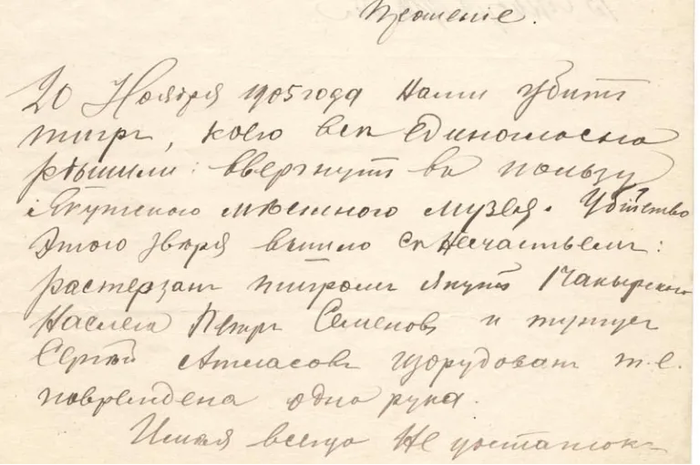 Прошеніе.
20 Ноября 1905 года Нами убитъ
тигръ, коего все единогласно
рѣшили: ввергнуть въ пользу
Якутского мѣстного музея. Убійство
этого звѣря вышло съ Несчастьемъ:
растерзанъ тигромъ якутъ I Чакырского
Наслега Петръ Семеновъ и тунгусъ
Сергѣй Атласовъ изуродованъ т.е.
повреждена одна рука.
Имѣя всегда Не достатокъ